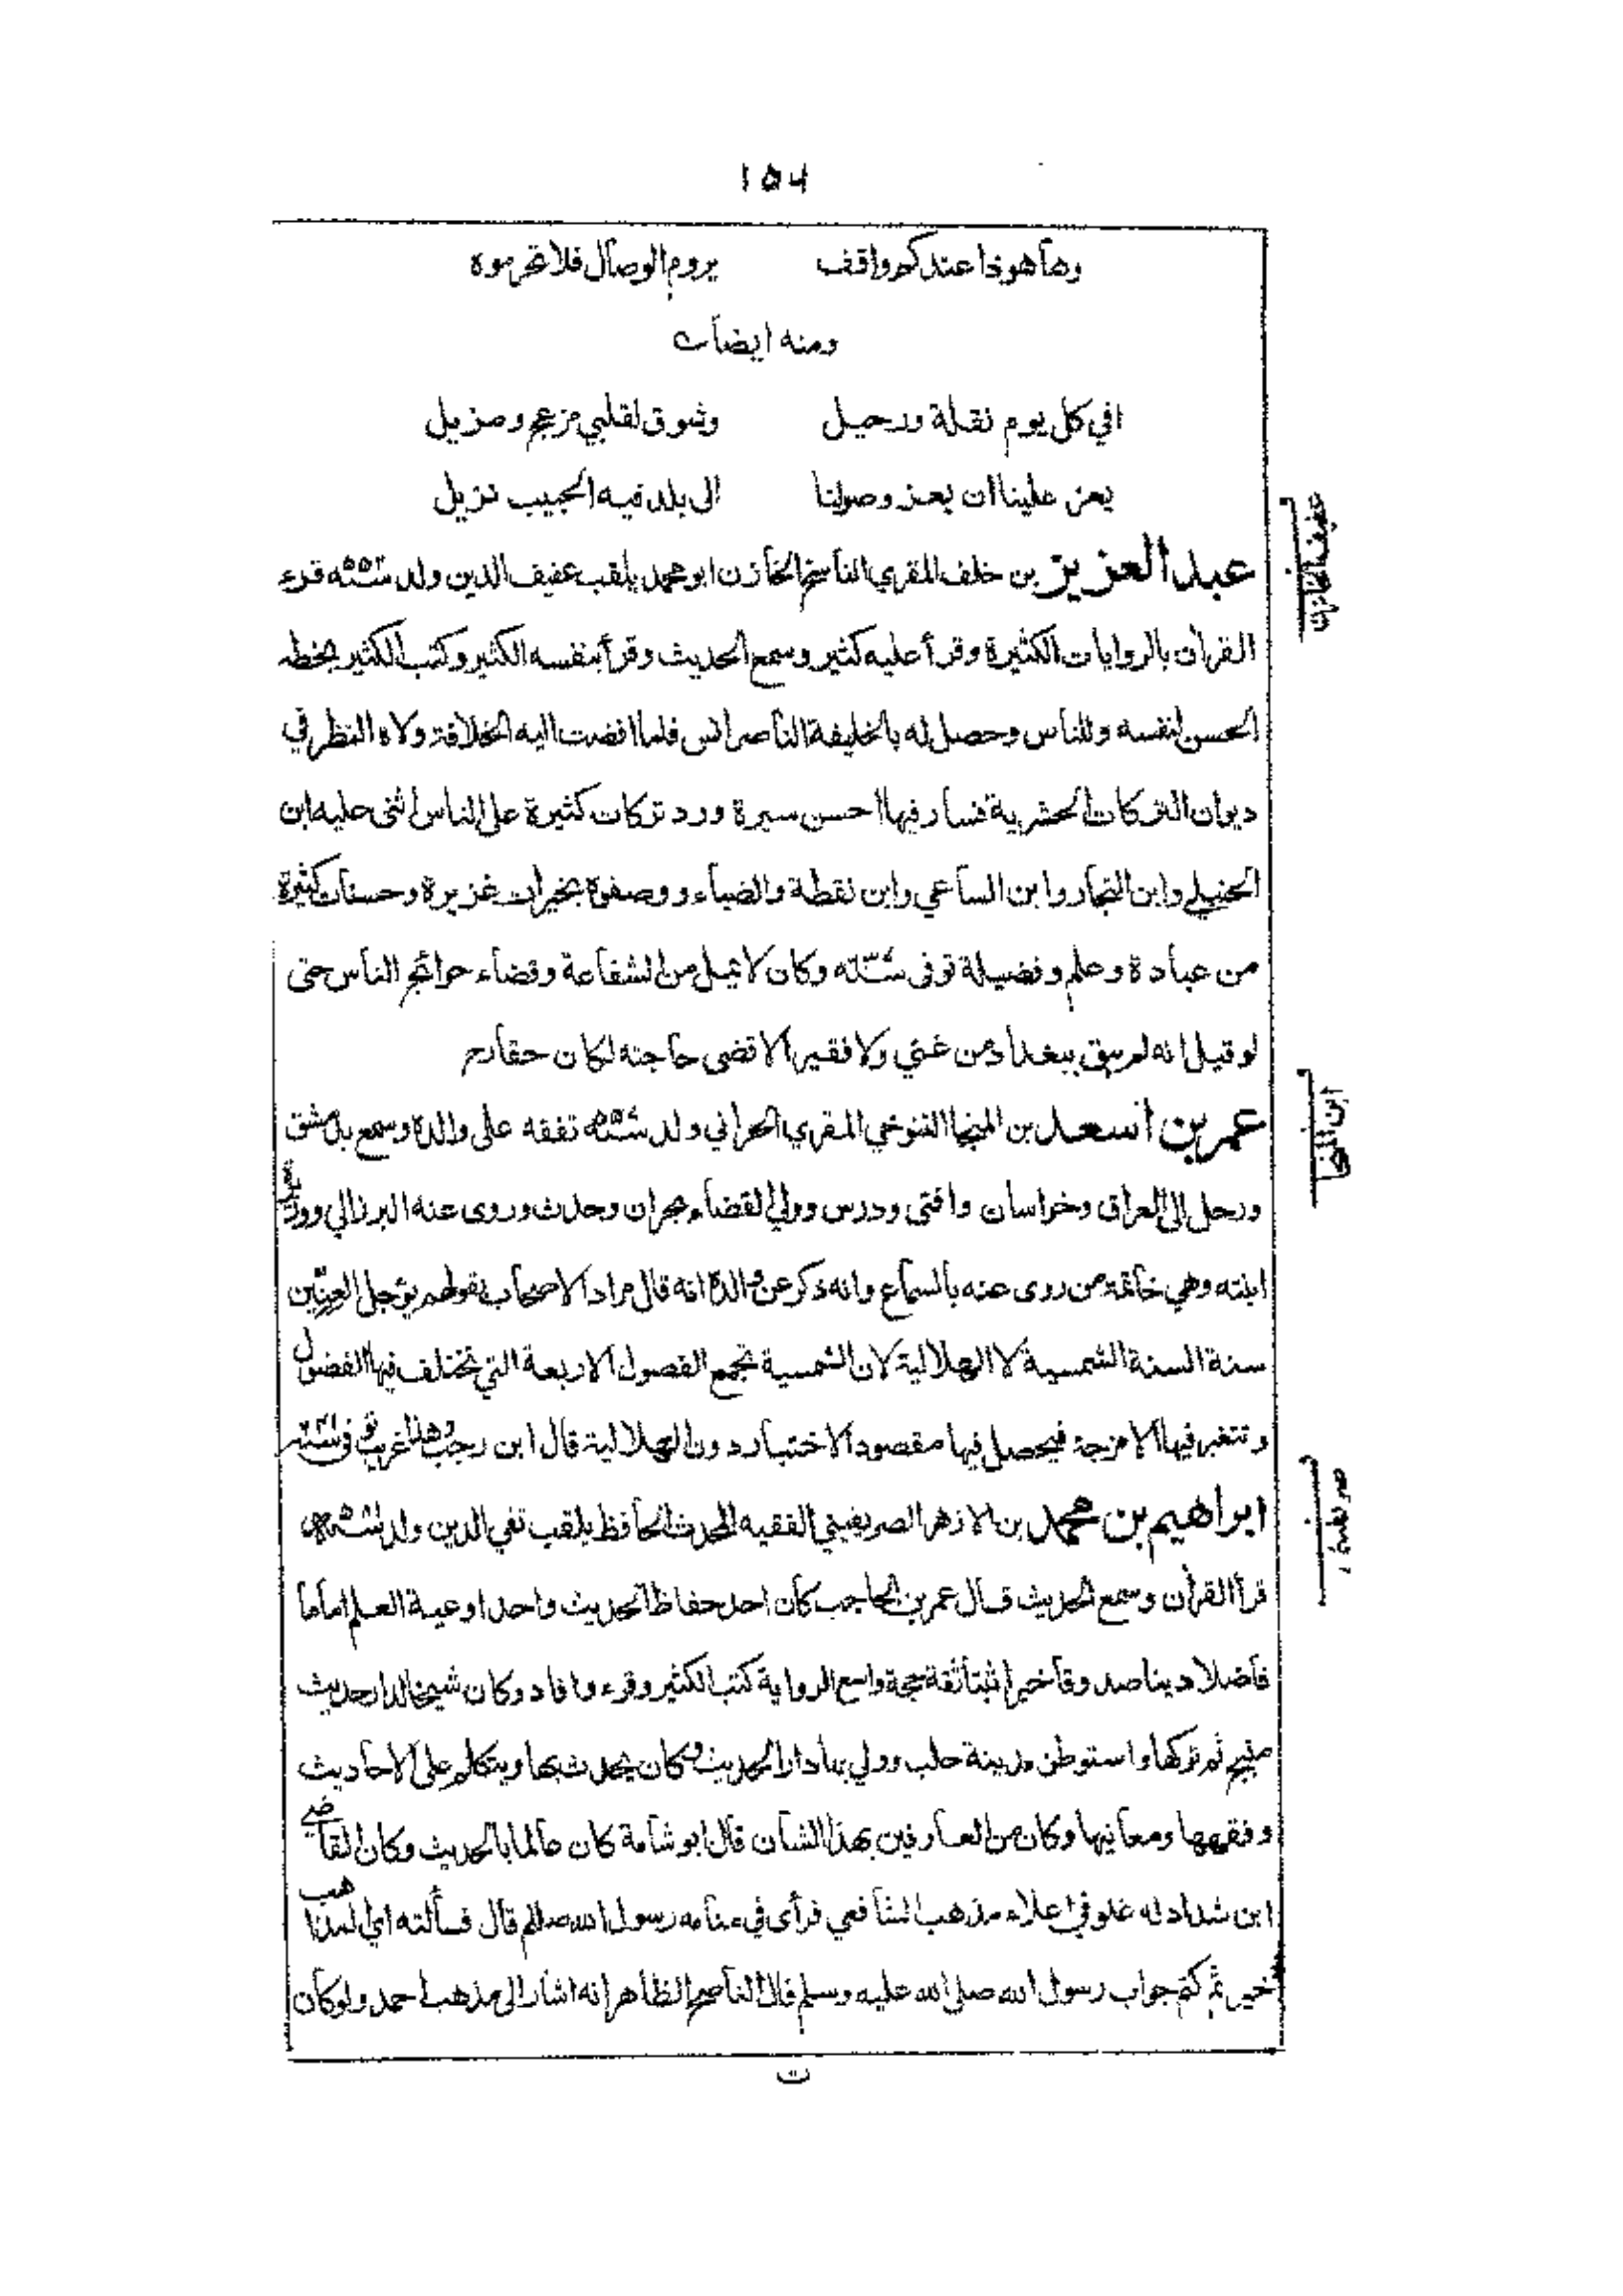 ١٥٤
وهاهوذا عندكم واقف يروم الوصال فلا تحرموه
ومنه ايضا
افي كل يوم نقلة ورحيل وشوق لقلبي مزعج ومزيل
يعز علينا ان يعز وصولنا الى بلد فيه الحبيب نزيل
عفيف الخازن
عبد العزيز بن خلف المقري الناسخ الخازن ابو محمد يلقب عفيف الدين ولد قرء
القران بالروايات الكثيرة وقرأ عليه كثير وسمع الحديث وقرأ بنفسه الكثير وكتب الكثير بخطه
الحسن لنفسه وللناس وحصل له بالخليفة الناصر انس فلما افضت اليه الخلافة ولاه النظر في
ديوان التركات الحشرية فسار فيها احسن سيرة ورد تركات كثيرة على الناس اثنى عليه ابن
الحنبلي وابن النجار وابن الساعي وابن نقطة والضياء ووصفوه بخيرات غزيرة وحسنات كثيرة
من عبادة وعلم وفضيلة توفى وكان لا يمل من الشفاعة وقضاء حوائج الناس حتى
لو قيل انه لم يبق ببغداد من غني ولا فقير الا قضى حاجته لكان حقا
ابن المنجا
عمر بن اسعد بن المنجا التنوخي المقري الحراني ولد تفقه على والده وسمع بدمشق
ورحل الى العراق وخراسان وافتى ودرس وولي القضاء بحران وحدث وروى عنه البرزالي
ابنته وهي خاتمة من روى عنه بالسماع وانه ذكر عن والده انه قال مراد الاصحاب بقولهم يؤجل العنين
سنة السنة الشمسية لا الهلالية لان الشمسية تجمع الفصول الاربعة التي تختلف فيها الفصول
وتتغير فيها الامزجة فيحصل فيها مقصود الاختبار دون الهلالية قال ابن رجب وهذا غريب توفي
صريفيني
ابراهيم بن محمد بن الازهر الصريفيني الفقيه المحدث الحافظ يلقب تقي الدين ولد
قرأ القرأن وسمع الحديث قال عمر بن الحاجب كان احد حفاظ الحديث واحد اوعية العلم اماما
فاضلا دينا صدوقا خيرا ثبتا ثقة حجة واسع الرواية كتب الكثير وقرء وافاد وكان شيخا لدار حديث
منبج ثم تركها واستوطن مدينة حلب وولي بها دار الحديث وكان يحدث بها ويتكلم على الاحاديث
وفقهها ومعانيها وكان من العارفين بهذا الشان قال ابو شامة كان عالما بالحديث وكان القاضي
ابن شداد له غلو في اعلاء مذهب الشافعي فرأى في منامه رسول الله صللم قال فسألته اي المذاهب
خير ثم كتم جواب رسول الله صلى الله عليه وسلم قال الناصح الظاهر انه اشار الى مذهب احمد ولو كان
ت